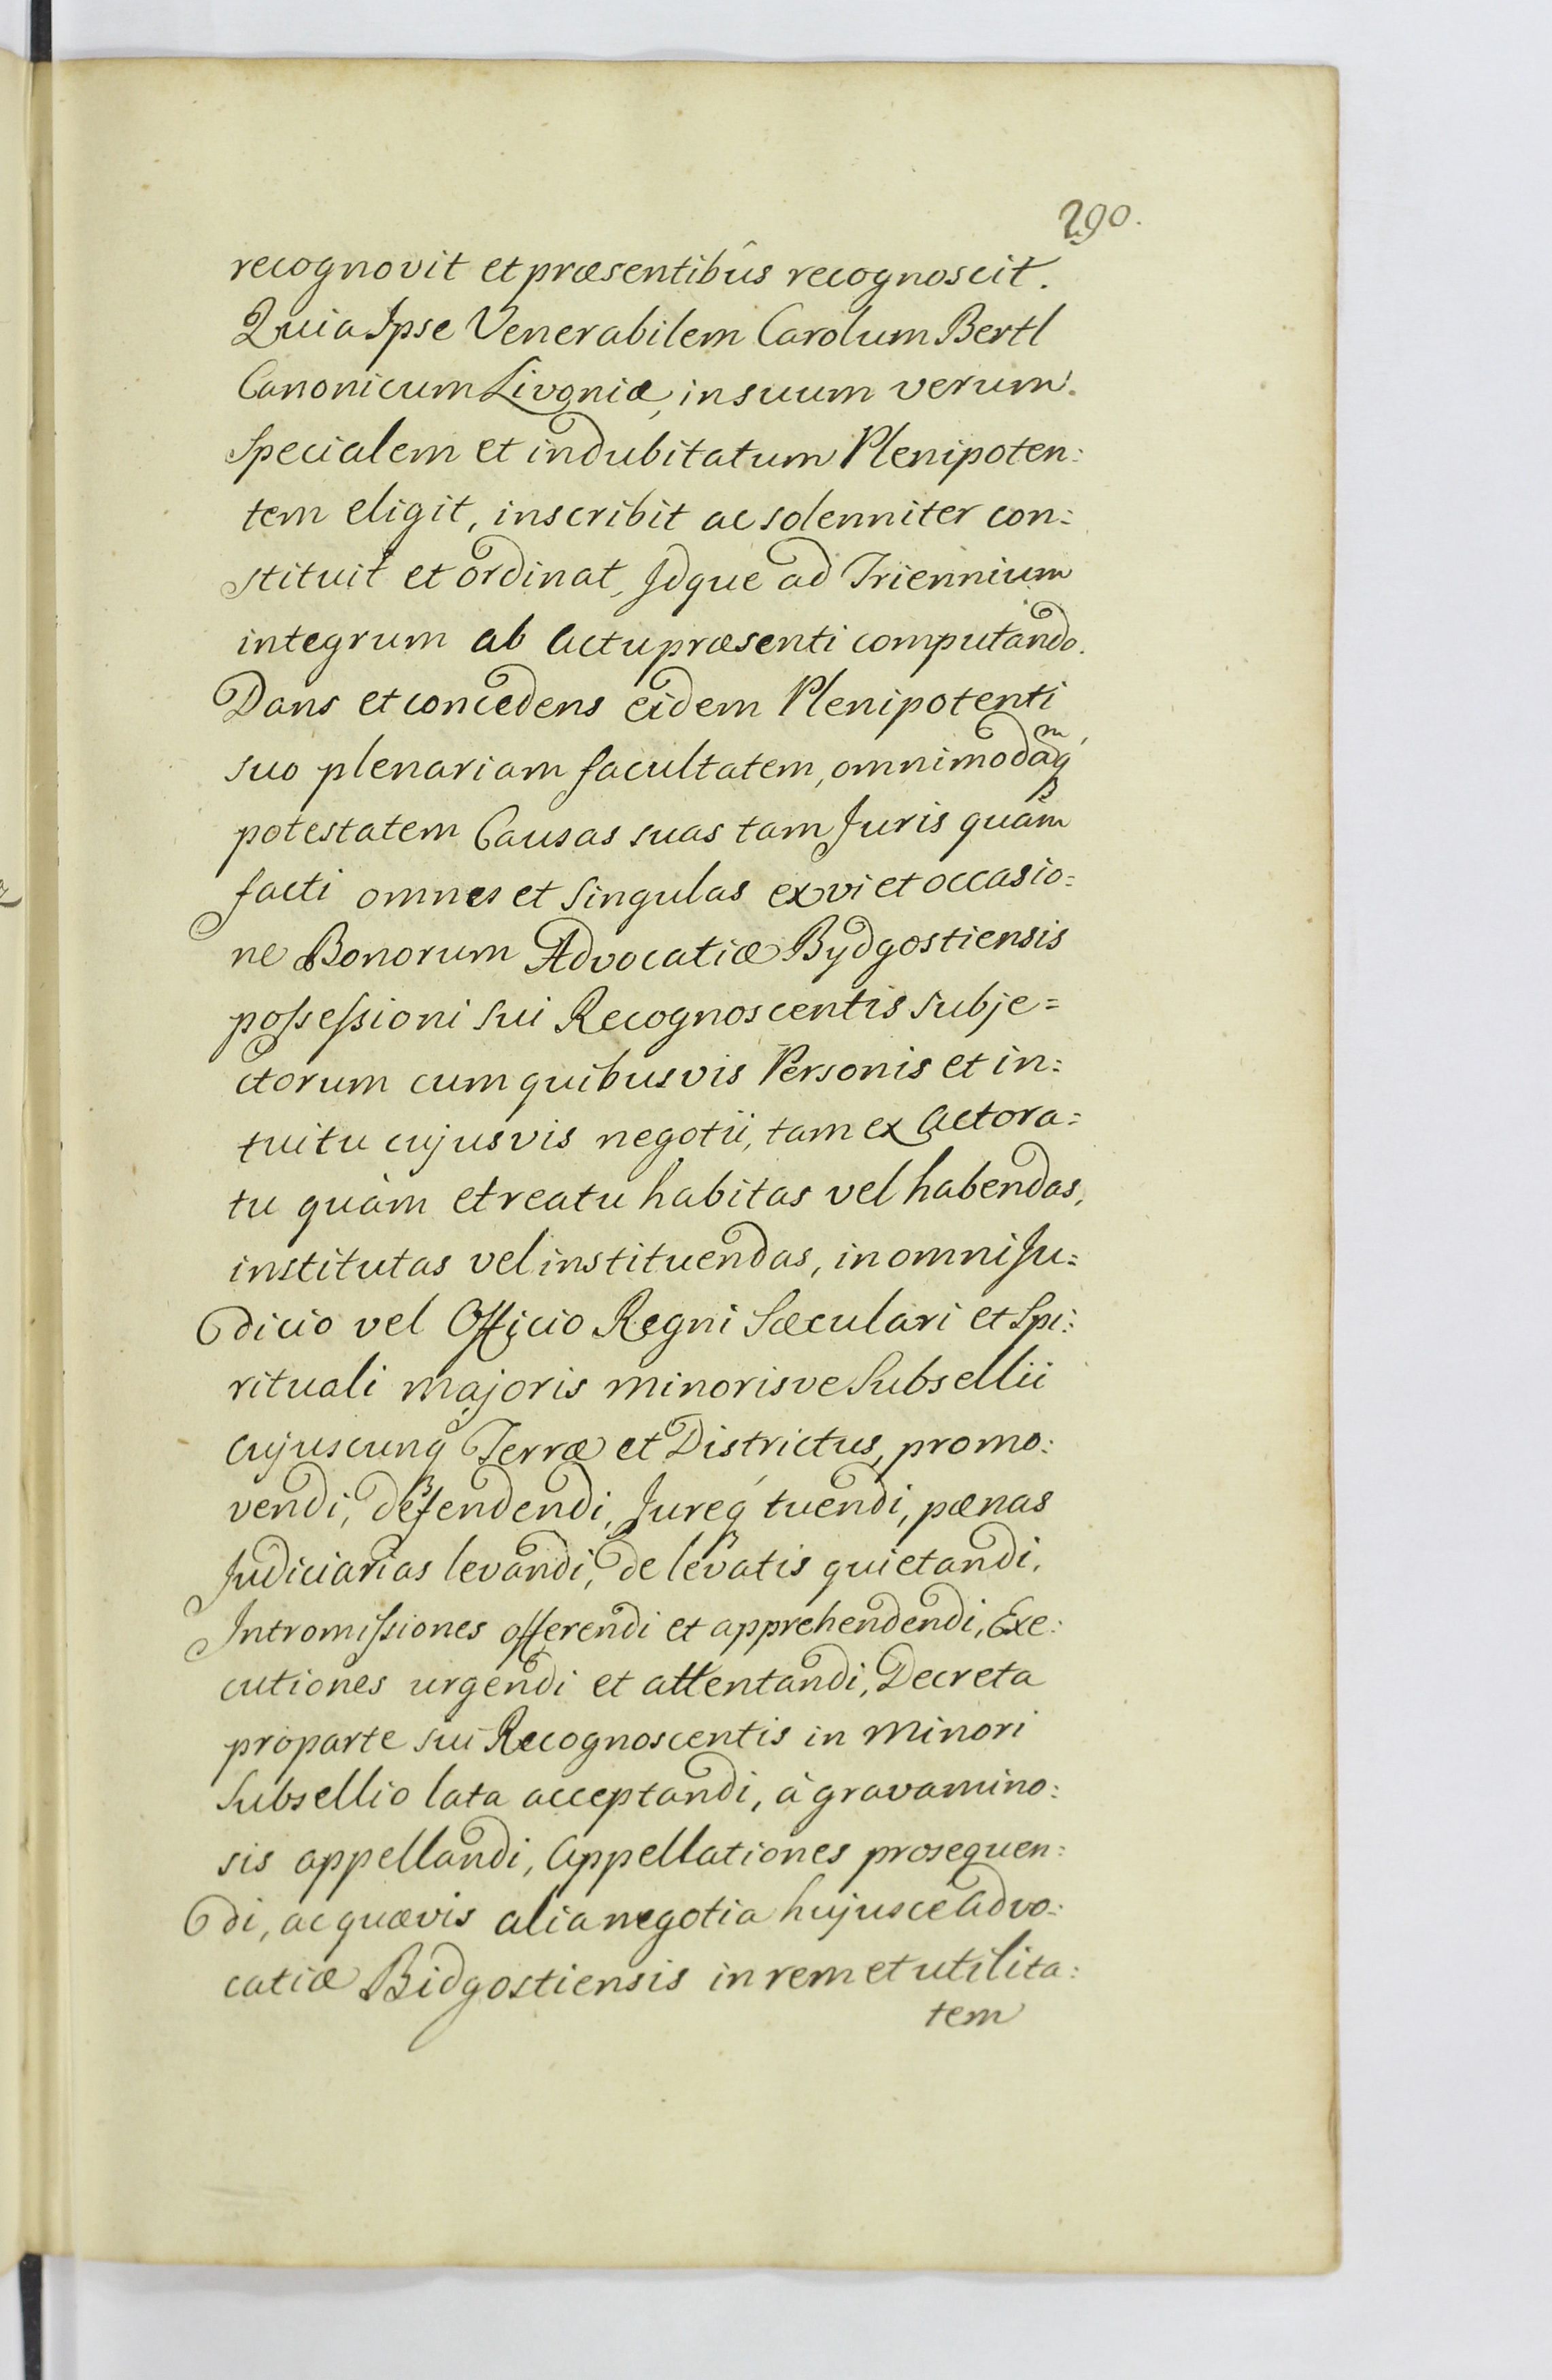 290.
recognovit et præsentibûs recognoscit.
Quia Ipse Venerabilem Carolum Bertl
Canonicum Livoniæ, in suum verum.
Specialem et indubitatum Plenipoten:
tem eligit, inscribit ac solenniter con:
stituit et ordinat, Idque ad Triennium
integrum ab Actu præsenti computando.
Dans et concedens eidem Plenipotenti
suo plenariam facultatem, omnimodamq̃
potestatem Causas suas tam Juris quàm
facti omnes et Singulas ex vi et occasio=
ne Bonorum Advocatiæ Bydgostiensis
poſseſsioni Sui Recognoscentis Subje=
ctorum cum quibusvis Personis et in:
tuitu cujusvis negotii, tam ex Actora=
tu quàm et reatu habitas vel habendas,
institutas vel instituendas, in omni Ju=
dicio vel Officio Regni Sæculari et Spi:
rituali majoris minorisve Subsellii
cujuscunq Terræ et Districtus, promo:
vendi, defendendi, Jureq́ tuendi, pœnas
Judiciarias levandi, de levatis quietandi,
Intromiſsiones offerendi et apprehendendi, Exe:
cutiones urgendi et attentandi, Decreta
pro parte sui Recognoscentis in Minori
Subsellio lata acceptandi, à gravamino:
sis appellandi, Appellationes prosequen:
di, ac quævis alia negotia hujusce Advo:
catiæ Bidgostiensis in rem et utilita:
tem